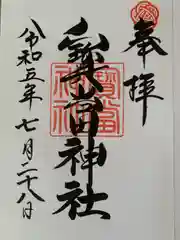 奉拝
寳當神社
令和五年七月二十八日